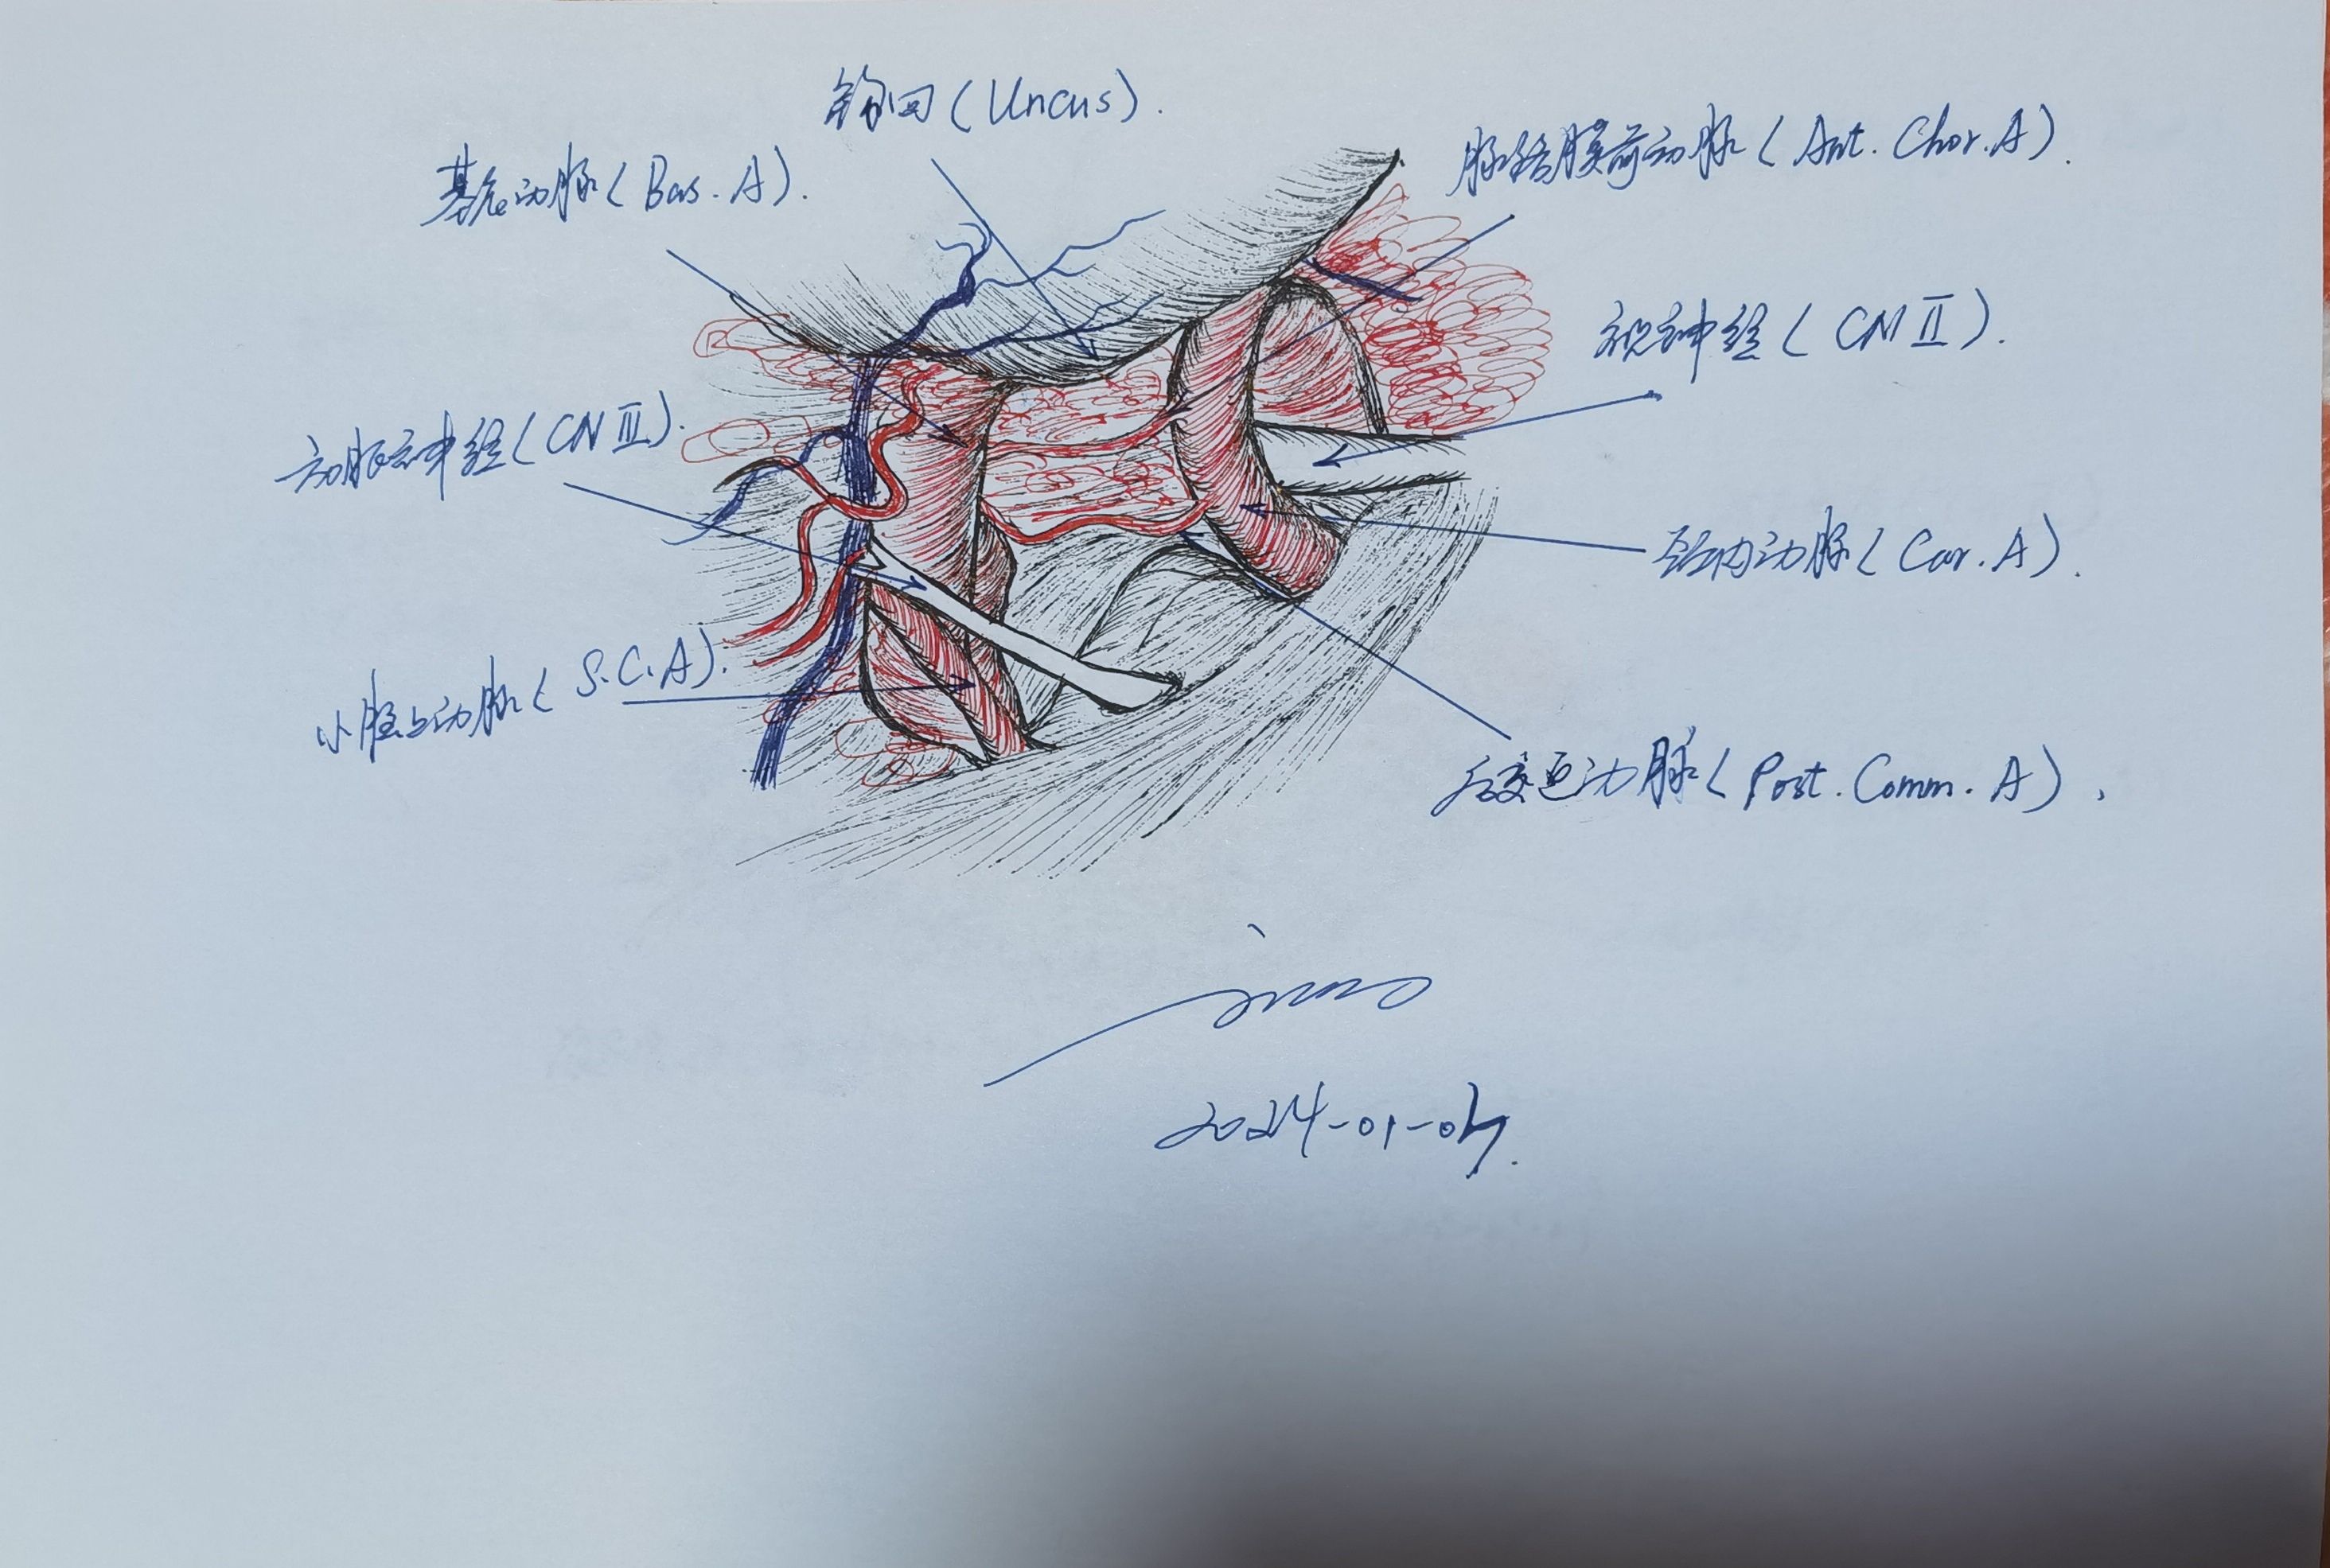 钩回(Uncus).
基底动脉(Bas. A).
脉络膜前动脉(Ant. Chor. A).
视神经(CN Ⅱ).
动眼神经(CN Ⅲ).
颈内动脉(Car. A).
小脑上动脉(S.C.A).
后交通动脉(Post. Comm. A).